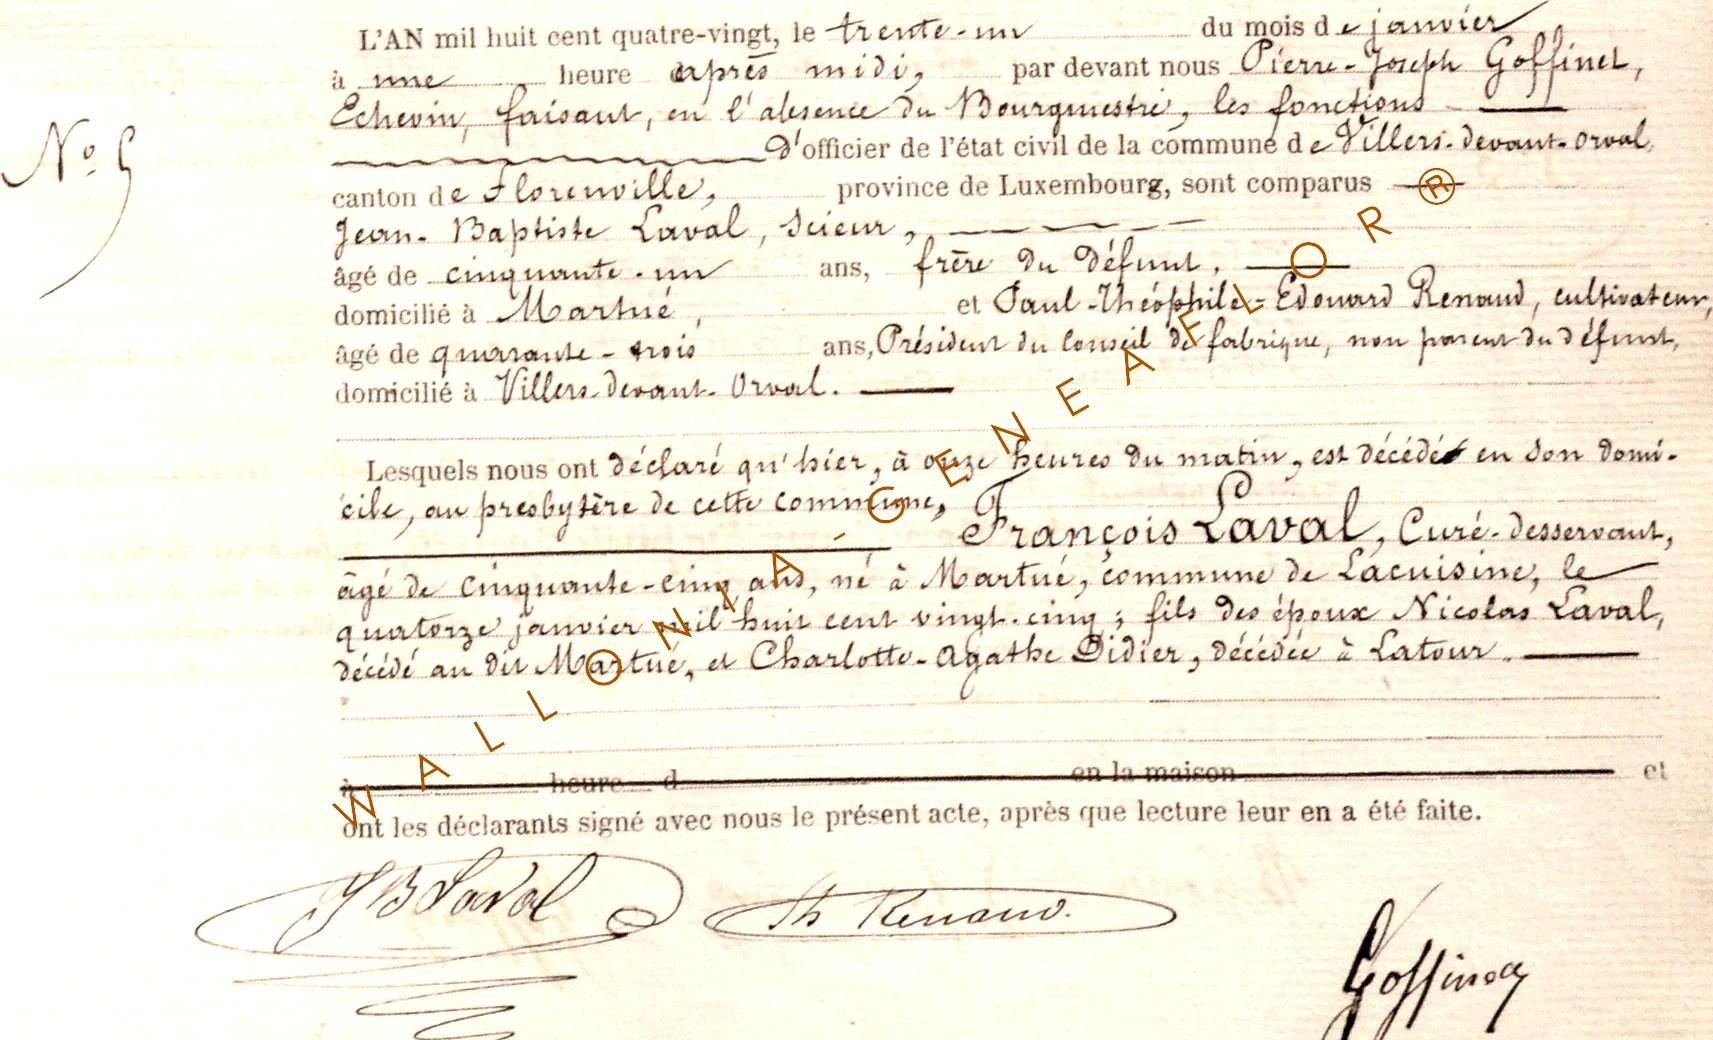 L'AN mil huit cent quatre-vingt, le trente-un du mois de janvier
à une heure après midi, par devant nous Pierre-Joseph Goffinet,
Echevin, faisant, en l'absence du Bourgmestre, les fonctions
d'officier de l'état civil de la commune de Villers-devant-Orval,
N° 5
canton de Florenville, province de Luxembourg, sont comparus
Jean-Baptiste Laval, scieur,
âgé de cinquante-un ans, frère du défunt,
domicilié à Martué, et Paul-Théophile-Edouard Renaud, cultivateur,
âgé de quarante-trois ans, Président du Conseil de fabrique, non parent du défunt,
domicilié à Villers-devant-Orval.
Lesquels nous ont déclaré qu'hier, à onze heures du matin, est décédé en son domi-
cile, au presbytère de cette commune,
François Laval, Curé-desservant,
âgé de cinquante-cinq ans, né à Martué, commune de Lacuisine, le
quatorze janvier mil huit cent vingt-cinq ; fils des époux Nicolas Laval,
décédé au dit Martué, et Charlotte-Agathe Didier, décédée à Latour.
à heure d en la maison et
ont les déclarants signé avec nous le présent acte, après que lecture leur en a été faite.
JB Laval Th Renaud. Goffinet
WALLONIA-GENEAFLOR®